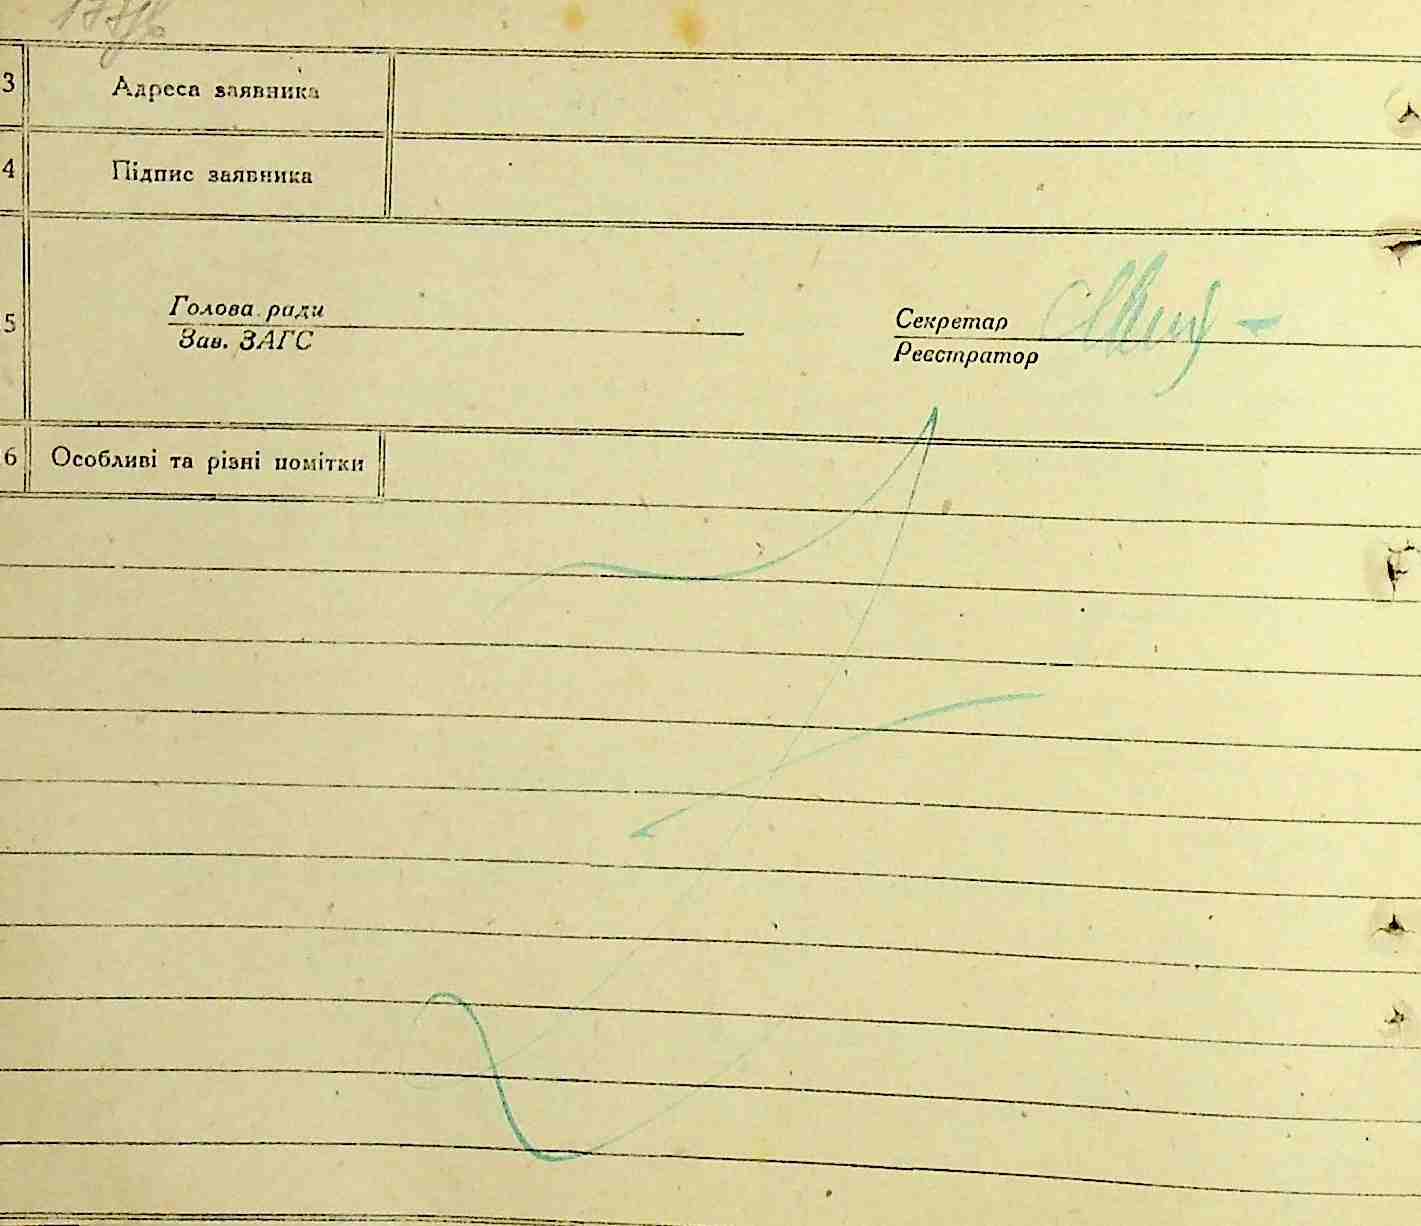 3 Адреса заявника
4 Підпис заявника
5 Голова ради
Зав. ЗАГС
Секретар
Реєстратор
6 Особливі та різні помітки